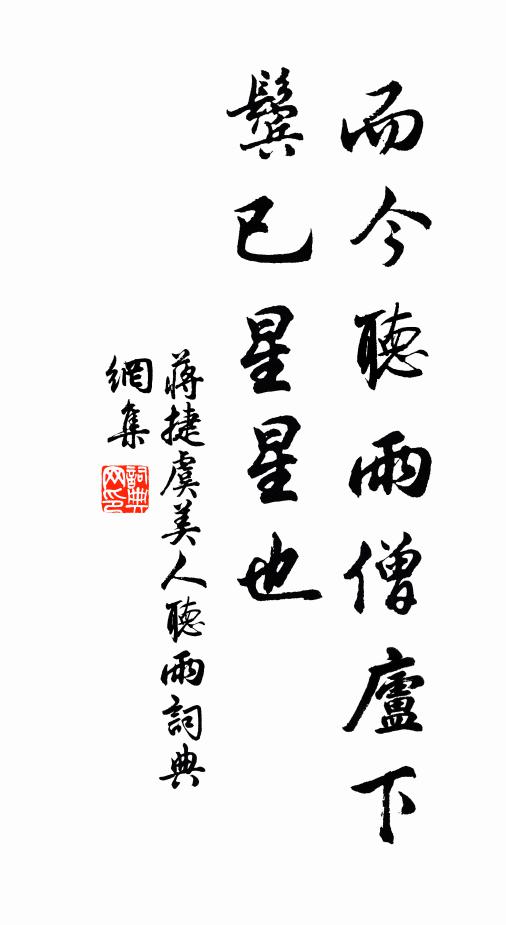 而今聽雨僧廬下
鬓已星星也
蔣捷虞美人聽雨詞典
網集
詞典
网印